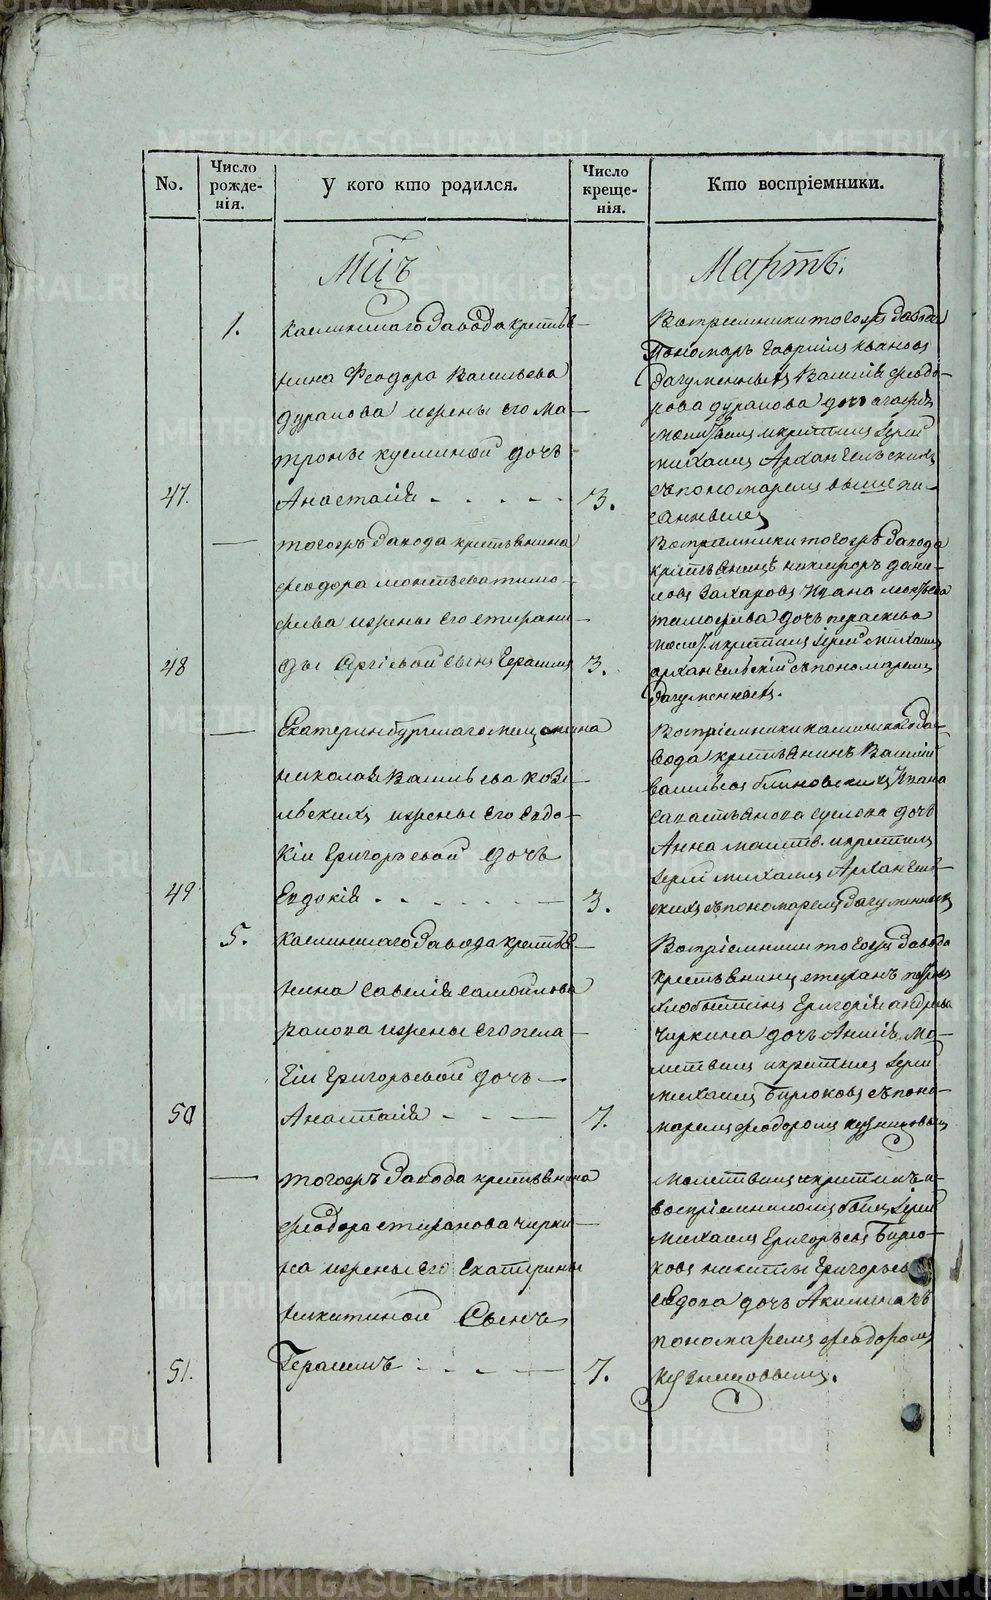 METRIKI.GASO-URAL.RU
No.
Число рожде-нія.
У кого кто родился.
Число креще-нія.
Кто воспріемники.
Мцъ
Мартъ.
1.
Каслинскаго завода крестья-
нина Феодора Васильева
дуракова и жены его Ма-
троны кузминой дочь
47.
Анастасія
3.
Воспріемники тогожъ завода
Пономарь Гавриилъ Ивановъ
Дагуменныхъ Василія феодо-
рова дуракова дочь
молитвилъ и крестилъ Іерей
михаилъ Архангельскихъ
съ пономаремъ вышепи-
саннымъ
тогожъ завода крестьянина
феодора
фѣева и жены его степани-
ды Сергіевой сынъ Герасимъ
48
3.
Воспріемники тогожъ завода
крестьянинъ никифоръ дани-
ловъ Захаровъ Ивана
тимофѣева дочь параскева
молит. и крестилъ Іерей михаилъ
архангельскій съ пономаремъ
Дагуменныхъ.
Екатеринбургскаго мещанина
николая Васильева козе-
льскихъ и жены его Евдо-
кіи Григорьевой дочь
49
Евдокія
3.
Воспріемники каслинскаго за-
вода крестьянинъ Василій
Васильевъ блиновскихъ Ивана
Савастьянова суслова дочь
Анна молитв. и крестилъ
Іерей михаилъ Архангель-
скихъ съ пономаремъ Дагуменныхъ
5.
Каслинскаго завода крестья-
нина Савелія Самойлова
ракова и жены его пела-
гіи Григорьевой дочь
50
Анастасія
7.
Воспріемники тогожъ завода
крестьянинъ степанъ петровъ
Хлобыстинъ Григорія андреева
Чиркина дочь Анисія мо-
литвилъ и крестилъ Іерей
михаилъ Бирюковъ съ поно-
маремъ феодоромъ кузнецовымъ
тогожъ завода крестьянина
феодора степанова чирки-
на и жены его Екатерины
никитиной Сынъ
51.
Герасимъ
7.
Молитвилъ и крестилъ и
воспріемникомъ былъ Іерей
михаилъ Григорьевъ Бирю-
ковъ никиты Григорьева
седова дочь Акилина съ
пономаремъ феодоромъ
кузнецовымъ.